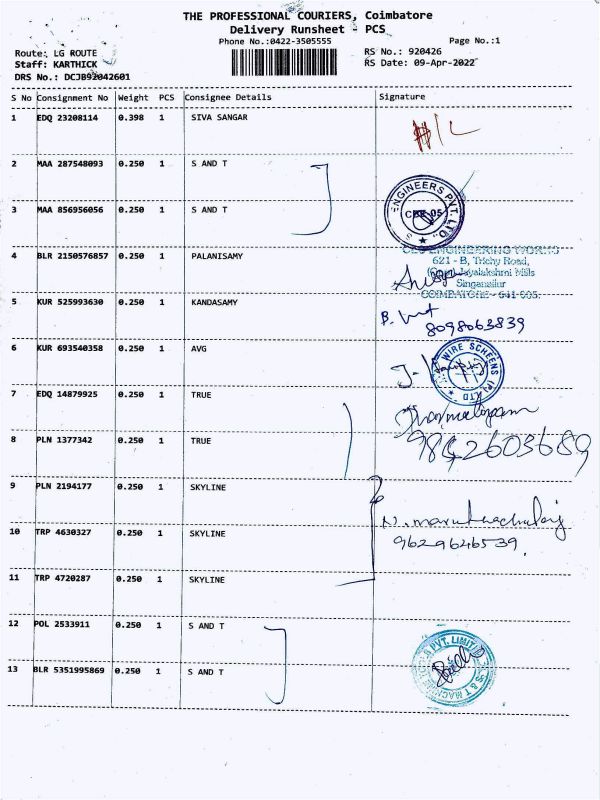 THE PROFESSIONAL COURIERS, Coimbatore
Delivery Runsheet - PCS
Phone No.:0422-3505555
Page No.:1
Route: LG ROUTE
RS No.: 920426
Staff: KARTHICK
RS Date: 09-Apr-2022
DRS No.: DCJB92042601
S No Consignment No Weight PCS Consignee Details Signature
1 EDQ 23208114 0.398 1 SIVA SANGAR
N/L
2 MAA 287548093 0.250 1 S AND T
3 MAA 856956056 0.250 1 S AND T
ENGINEERS PVT. LTD.
CBE-05
4 BLR 2150576857 0.250 1 PALANISAMY
ENGINEERING WORKS
621 - B, Trichy Road,
Jayalakshmi Mills
Singanallur
COIMBATORE - 641 005.
5 KUR 525993630 0.250 1 KANDASAMY
8098063839
6 KUR 693540358 0.250 1 AVG
WIRE SCREENS (P) LTD
7 EDQ 14879925 0.250 1 TRUE
8 PLN 1377342 0.250 1 TRUE
9842603689
9 PLN 2194177 0.250 1 SKYLINE
10 TRP 4630327 0.250 1 SKYLINE
9629646539
11 TRP 4720287 0.250 1 SKYLINE
12 POL 2533911 0.250 1 S AND T
13 BLR 5351995869 0.250 1 S AND T
PVT. LIMITED
S & T MACHINERY